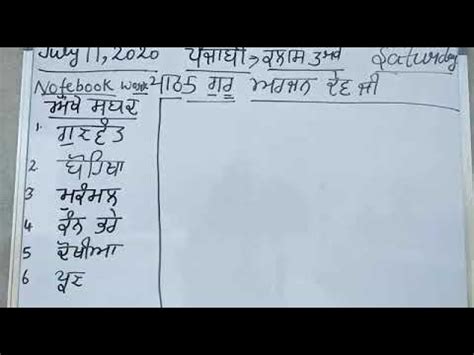 July 11, 2020 ਪੰਜਾਬੀ, ਕਲਾਸ Saturday
Notebook work ਪਾਠ 5 ਗੁਰੂ ਅਰਜਨ ਦੇਵ ਜੀ
ਔਖੇ ਸ਼ਬਦ
1. ਗੁਣਵੰਤ
2
3 ਮੁਕੰਮਲ
4 ਕੰਨ ਭਰੇ
5 ਦੋਖੀਆ
6 ਪ੍ਰਣ